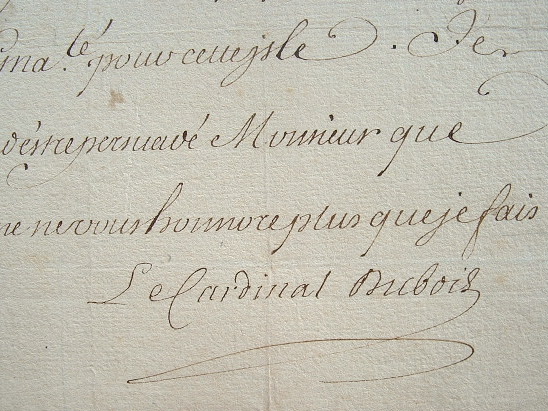 ma.té pour cette isle. Je
d'estre persuadé Monsieur que
ne ne vous honnore plus que je fais
Le Cardinal Dubois